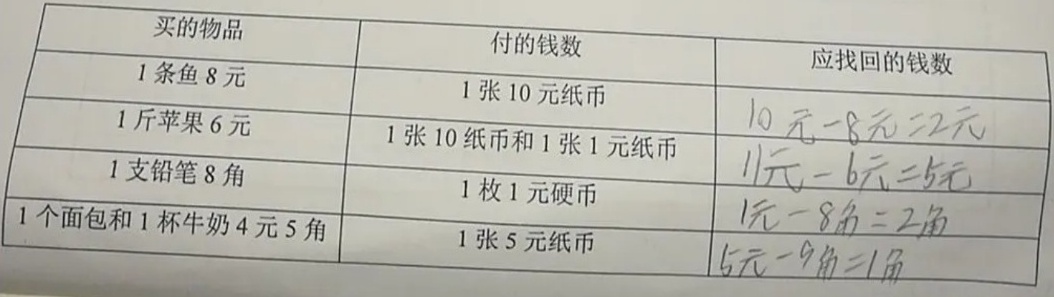 买的物品 付的钱数 应找回的钱数
1条鱼8元 1张10元纸币 10元-8元=2元
1斤苹果6元 1张10纸币和1张1元纸币 11元-6元=5元
1支铅笔8角 1枚1元硬币 1元-8角=2角
1个面包和1杯牛奶4元5角 1张5元纸币 5元-9角=1角